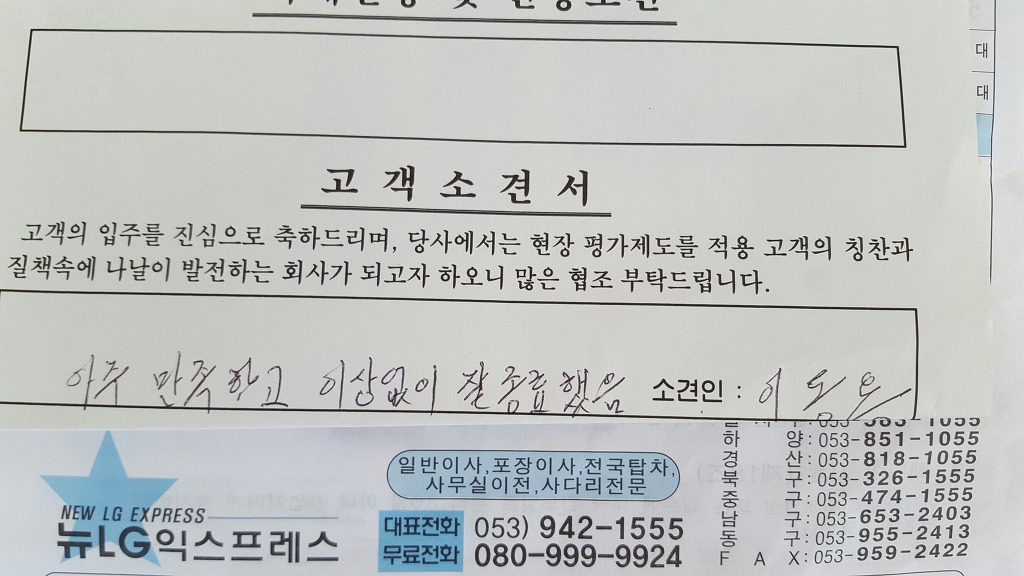 고객소견서
고객의 입주를 진심으로 축하드리며, 당사에서는 현장 평가제도를 적용 고객의 칭찬과
질책속에 나날이 발전하는 회사가 되고자 하오니 많은 협조 부탁드립니다.
아주 만족하고 이상없이 잘 종료했음 소견인 : 이
일반이사,포장이사,전국탑차,
사무실이전,사다리전문
NEW LG EXPRESS
뉴LG익스프레스
대표전화 053) 942-1555
무료전화 080-999-9924
하 양:053-851-1055
경 산:053-818-1055
북 구:053-326-1555
중 구:053-474-1555
남 구:053-653-2403
동 구:053-955-2413
F A X:053-959-2422
대
대